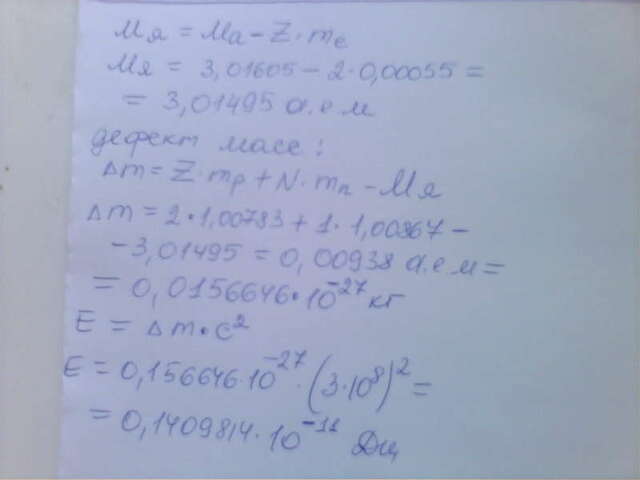 Mя = Ma - Z·me
Mя = 3,01605 - 2·0,00055 =
= 3,01495 а.е.м
дефект масс:
Δm = Z·mp + N·mn - Mя
Δm = 2·1,00783 + 1·1,00867 -
- 3,01495 = 0,00938 а.е.м =
= 0,0156646·10⁻²⁷ кг
E = Δm·c²
E = 0,156646·10⁻²⁷·(3·10⁸)² =
= 0,1409814·10⁻¹¹ Дж